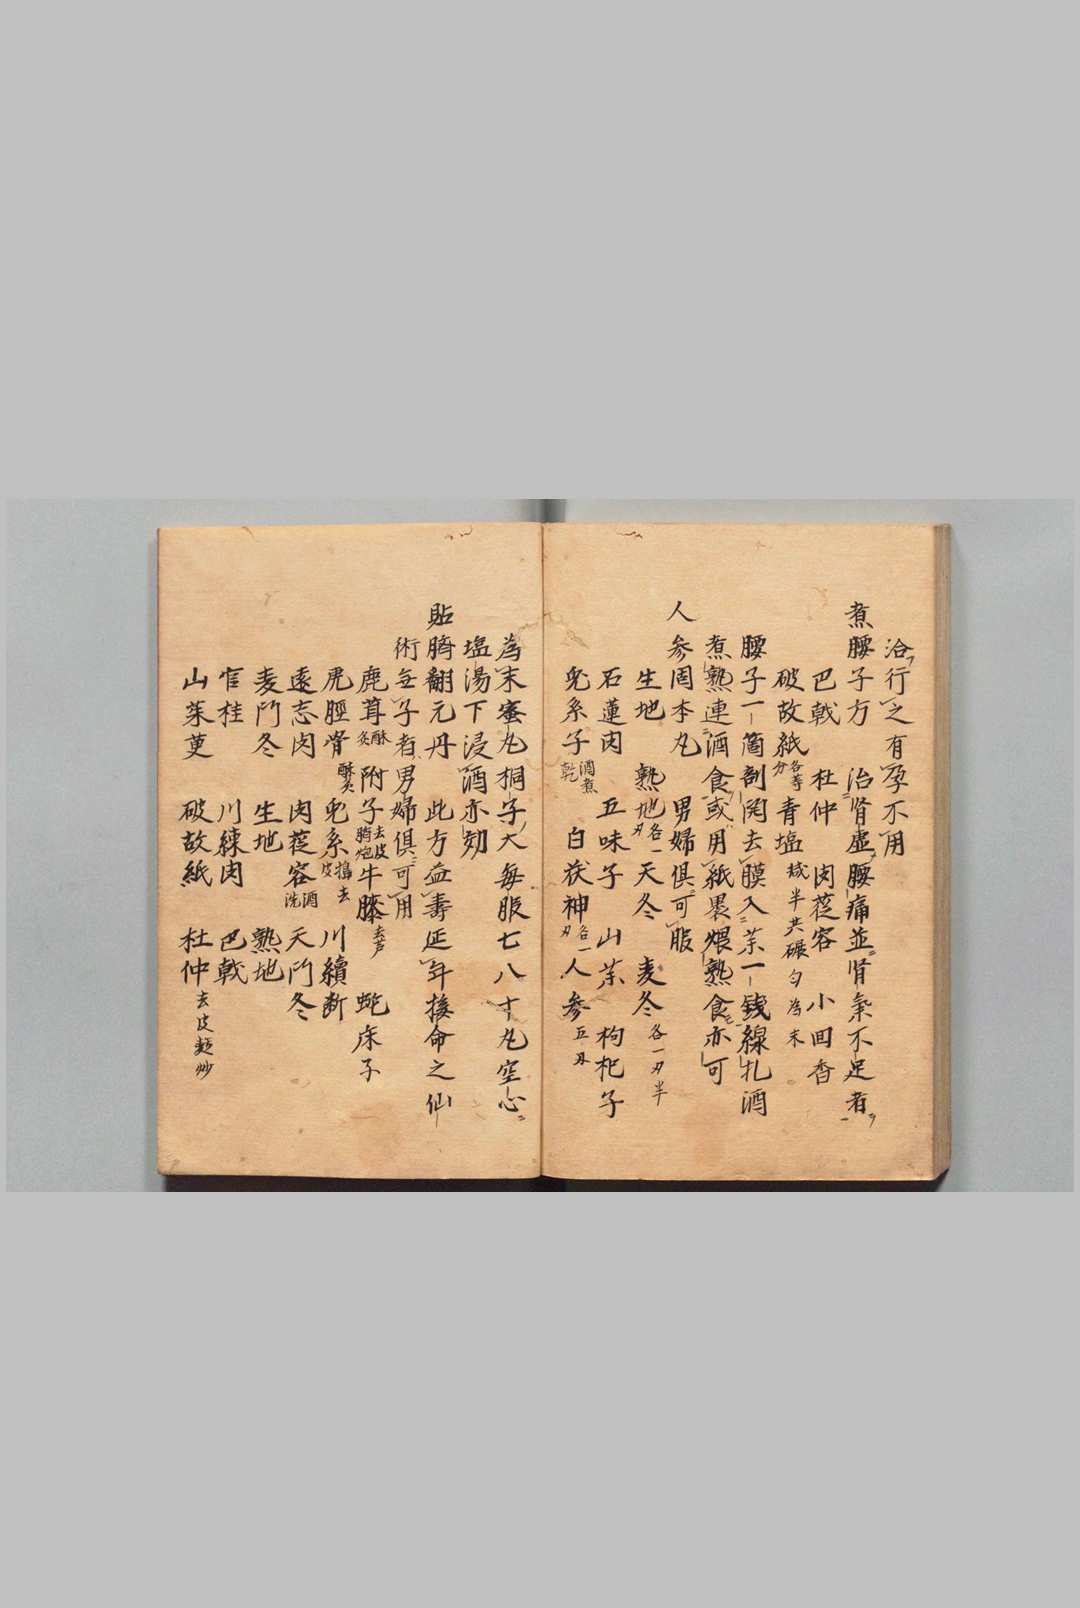 洽行之有孕不用
煮腰子方　治腎虚腰痛並腎氣不足者
巴戟　杜仲　肉蓯容　小回香
破故紙各等分青塩減半共碾匀為末
腰子一箇剖開去膜入茱一銭線扎酒
煮熟連酒食或用紙裹煨熟食亦可
人参固本丸　男婦倶可服
生地　熟地各一刄天冬　麦冬各一刄半
石蓮肉　五味子　山茱　枸杞子
兎糸子酒煮乾　白茯神各一刄人参五刄
為末蜜丸桐子大每服七八十丸空心
塩湯下浸酒亦効
貼臍翻元丹　此方益壽延年接命之仙
術無子者男婦倶可用
鹿茸酥炙　附子去皮臍炮牛膝去芦　蛇床子
虎脛骨酥炙兎糸搗去皮　川續断
遠志肉　肉蓯容酒洗　天門冬
麦門冬　生地　熟地
官桂　川練肉　巴戟
山茱萸　破故紙　杜仲去皮麺炒